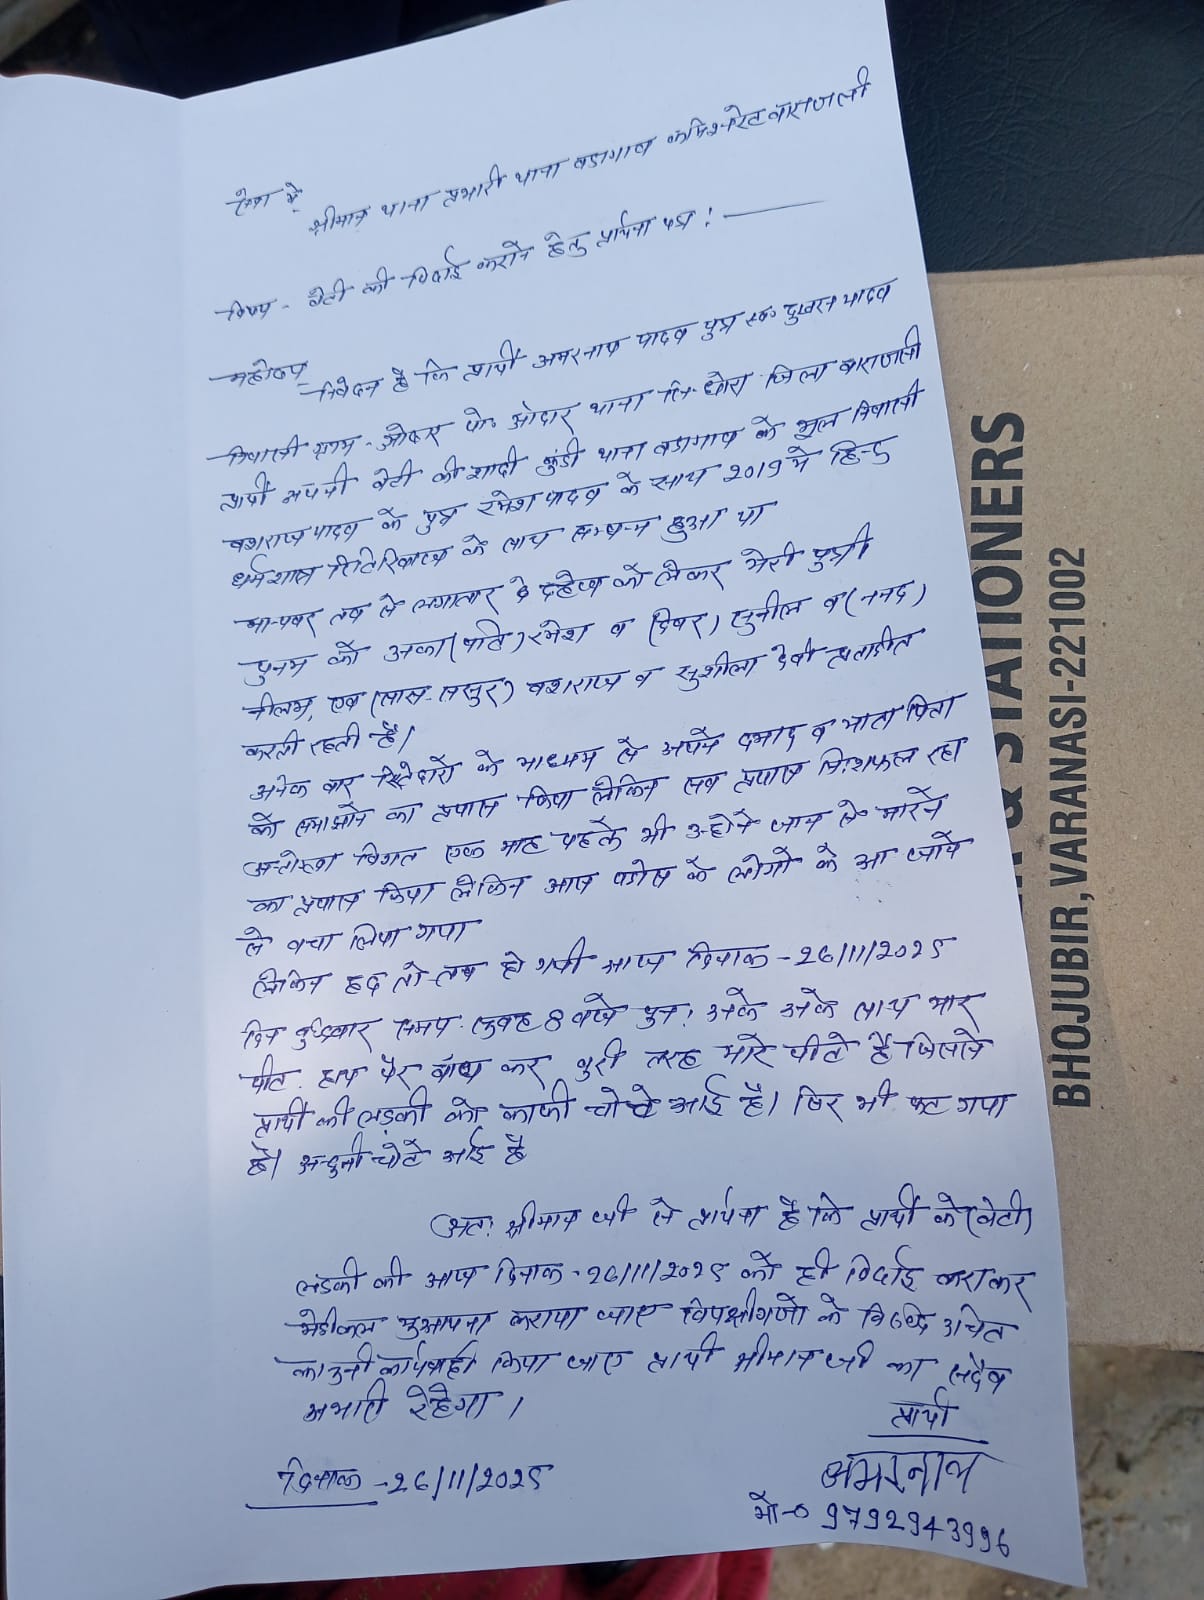 सेवा में,
श्रीमान थाना प्रभारी थाना बडागाव कमिश्नरेट वाराणसी
विषय - बेटी की विदाई कराने हेतु प्रार्थना पत्र ! —
महोदय,
निवेदन है कि प्रार्थी अमरनाथ यादव पुत्र स्व० दुखरन यादव
निवासी ग्राम - ओदार पो० ओदार थाना जिला वाराणसी
प्रार्थी अपनी बेटी की शादी कुंडी थाना बडागाव के मूल निवासी
बंशराज यादव के पुत्र रमेश यादव के साथ 2019 में हिन्दु
धर्मशास्त्र रितिरिवाज के साथ सम्पन्न हुआ था
मान्यवर तब से लगातार दहेज को लेकर मेरी पुत्री
पुनम को उनका (पति) रमेश व (देवर) सुनील व (ननद)
नीलम, एव (सास-ससुर) बंशराज व सुशीला देवी प्रताडीत
करती रहती है।
अनेक बार रिस्तेदारों के माध्यम से अपने दमाद व माता पिता
को समझाने का प्रयास किया लेकिन सब प्रयास निःशफल रहा
विगत एक माह पहले भी उन्होंने जान से मारने
का प्रयास किया लेकिन आस पडोस के लोगों के आ जाने
से बचा लिया गया
लेकिन हद तो तब हो गयी आज दिनांक - 26/11/2025
दिन बुधवार समय. सुबह 8 बजे पुनः उनके उनके साथ मार
पीट. हाथ पैर बांध कर बुरी तरह मारे पीटे है जिससे
प्रार्थी की लड़की को काफी चोटे आई है। सिर भी फट गया
है। अन्दुनी चोटे आई है
अतः श्रीमान जी से प्रार्थना है कि प्रार्थी के (बेटी)
लडकी को आज दिनांक - 26/11/2025 को ही विदाई कराकर
मेडीकल मुआयना कराया जाए विपक्षीगणो के विरुद्ध उचित
कानुनी कार्यवाही किया जाए प्रार्थी श्रीमान जी का सदैव
अभारी रहेगा।
प्रार्थी
अमरनाथ
दिनांक - 26/11/2025
मो-० 9792943996
& STATIONERS
BHOJUBIR, VARANASI-221002